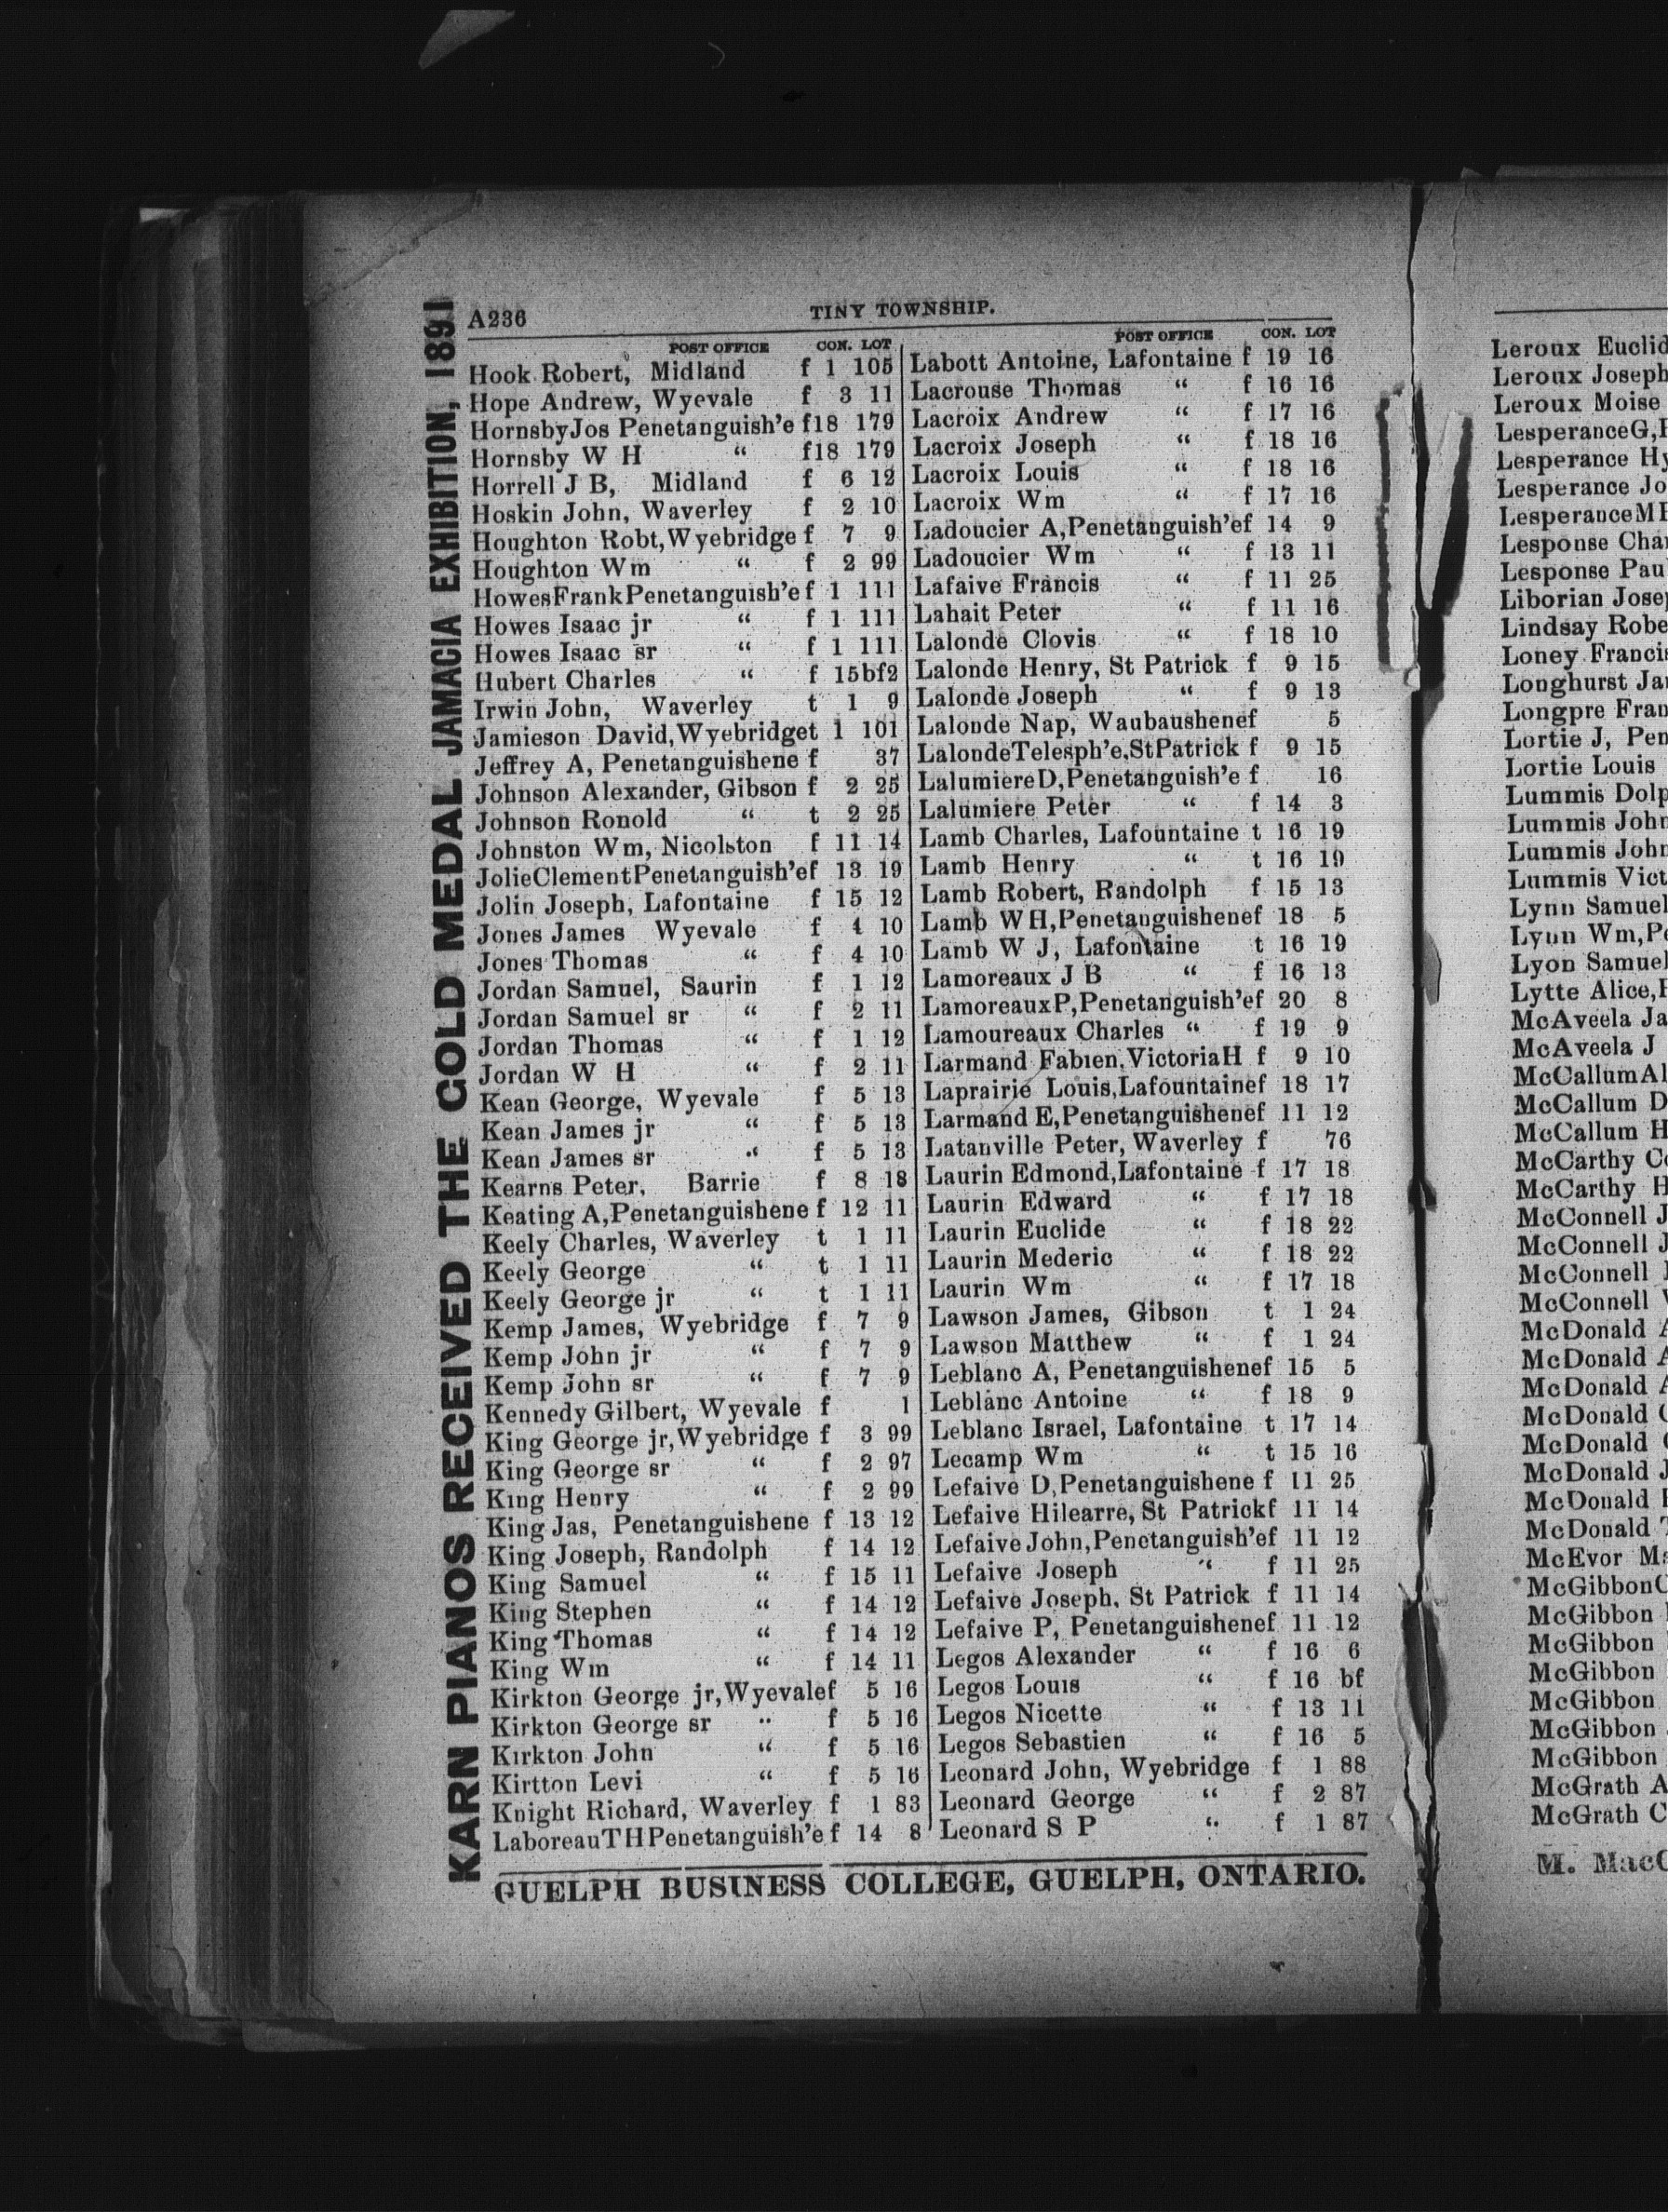 KARN PIANOS RECEIVED THE GOLD MEDAL JAMACIA EXHIBITION, 1891
A236
TINY TOWNSHIP.
POST OFFICE CON. LOT
Hook Robert, Midland f 1 105
Hope Andrew, Wyevale f 3 11
HornsbyJos Penetanguish'e f18 179
Hornsby W H " f18 179
Horrell J B, Midland f 6 12
Hoskin John, Waverley f 2 10
Houghton Robt,Wyebridge f 7 9
Houghton Wm " f 2 99
HowesFrankPenetanguish'e f 1 111
Howes Isaac jr " f 1 111
Howes Isaac sr " f 1 111
Hubert Charles " f 15bf2
Irwin John, Waverley t 1 9
Jamieson David,Wyebridget 1 101
Jeffrey A, Penetanguishene f 37
Johnson Alexander, Gibson f 2 25
Johnson Ronold " t 2 25
Johnston Wm, Nicolston f 11 14
JolieClementPenetanguish'ef 13 19
Jolin Joseph, Lafontaine f 15 12
Jones James Wyevale f 4 10
Jones Thomas " f 4 10
Jordan Samuel, Saurin f 1 12
Jordan Samuel sr " f 2 11
Jordan Thomas " f 1 12
Jordan W H " f 2 11
Kean George, Wyevale f 5 13
Kean James jr " f 5 13
Kean James sr " f 5 13
Kearns Peter, Barrie f 8 18
Keating A,Penetanguishene f 12 11
Keely Charles, Waverley t 1 11
Keely George " t 1 11
Keely George jr " t 1 11
Kemp James, Wyebridge f 7 9
Kemp John jr " f 7 9
Kemp John sr " f 7 9
Kennedy Gilbert, Wyevale f 1
King George jr,Wyebridge f 3 99
King George sr " f 2 97
King Henry " f 2 99
King Jas, Penetanguishene f 13 12
King Joseph, Randolph f 14 12
King Samuel " f 15 11
King Stephen " f 14 12
King Thomas " f 14 12
King Wm " f 14 11
Kirkton George jr,Wyevalef 5 16
Kirkton George sr " f 5 16
Kirkton John " f 5 16
Kirtton Levi " f 5 16
Knight Richard, Waverley f 1 83
LaboreauTHPenetanguish'e f 14 8
POST OFFICE CON. LOT
Labott Antoine, Lafontaine f 19 16
Lacrouse Thomas " f 16 16
Lacroix Andrew " f 17 16
Lacroix Joseph " f 18 16
Lacroix Louis " f 18 16
Lacroix Wm " f 17 16
Ladoucier A,Penetanguish'ef 14 9
Ladoucier Wm " f 13 11
Lafaive Francis " f 11 25
Lahait Peter " f 11 16
Lalonde Clovis " f 18 10
Lalonde Henry, St Patrick f 9 15
Lalonde Joseph " f 9 13
Lalonde Nap, Waubaushenef 5
LalondeTelesph'e,StPatrick f 9 15
LalumiereD,Penetanguish'e f 16
Lalumiere Peter " f 14 3
Lamb Charles, Lafountaine t 16 19
Lamb Henry " t 16 19
Lamb Robert, Randolph f 15 13
Lamb WH,Penetanguishenef 18 5
Lamb W J, Lafontaine t 16 19
Lamoreaux J B " f 16 13
LamoreauxP,Penetanguish'ef 20 8
Lamoureaux Charles " f 19 9
Larmand Fabien,VictoriaH f 9 10
Laprairie Louis,Lafountainef 18 17
Larmand E,Penetanguishenef 11 12
Latanville Peter, Waverley f 76
Laurin Edmond,Lafontaine f 17 18
Laurin Edward " f 17 18
Laurin Euclide " f 18 22
Laurin Mederic " f 18 22
Laurin Wm " f 17 18
Lawson James, Gibson t 1 24
Lawson Matthew " f 1 24
Leblanc A, Penetanguishenef 15 5
Leblanc Antoine " f 18 9
Leblanc Israel, Lafontaine t 17 14
Lecamp Wm " t 15 16
Lefaive D,Penetanguishene f 11 25
Lefaive Hilearre, St Patrickf 11 14
Lefaive John,Penetanguish'ef 11 12
Lefaive Joseph " f 11 25
Lefaive Joseph, St Patrick f 11 14
Lefaive P, Penetanguishenef 11 12
Legos Alexander " f 16 6
Legos Louis " f 16 bf
Legos Nicette " f 13 11
Legos Sebastien " f 16 5
Leonard John, Wyebridge f 1 88
Leonard George " f 2 87
Leonard S P " f 1 87
GUELPH BUSINESS COLLEGE, GUELPH, ONTARIO.
Leroux Euclid
Leroux Joseph
Leroux Moise
LesperanceG,
Lesperance Hy
Lesperance Jo
LesperanceM
Lesponse Cha
Lesponse Pau
Liborian Jose
Lindsay Robe
Loney Franci
Longhurst Ja
Longpre Fran
Lortie J, Pen
Lortie Louis
Lummis Dolp
Lummis John
Lummis John
Lummis Vict
Lynn Samuel
Lynn Wm,Pe
Lyon Samuel
Lytte Alice,
McAveela Ja
McAveela J
McCallumAl
McCallum D
McCallum H
McCarthy Co
McCarthy H
McConnell J
McConnell J
McConnell
McConnell
McDonald A
McDonald A
McDonald A
McDonald
McDonald
McDonald J
McDonald
McDonald
McEvor M
McGibbon
McGibbon
McGibbon
McGibbon
McGibbon
McGibbon
McGibbon
McGrath A
McGrath C
M. Mac